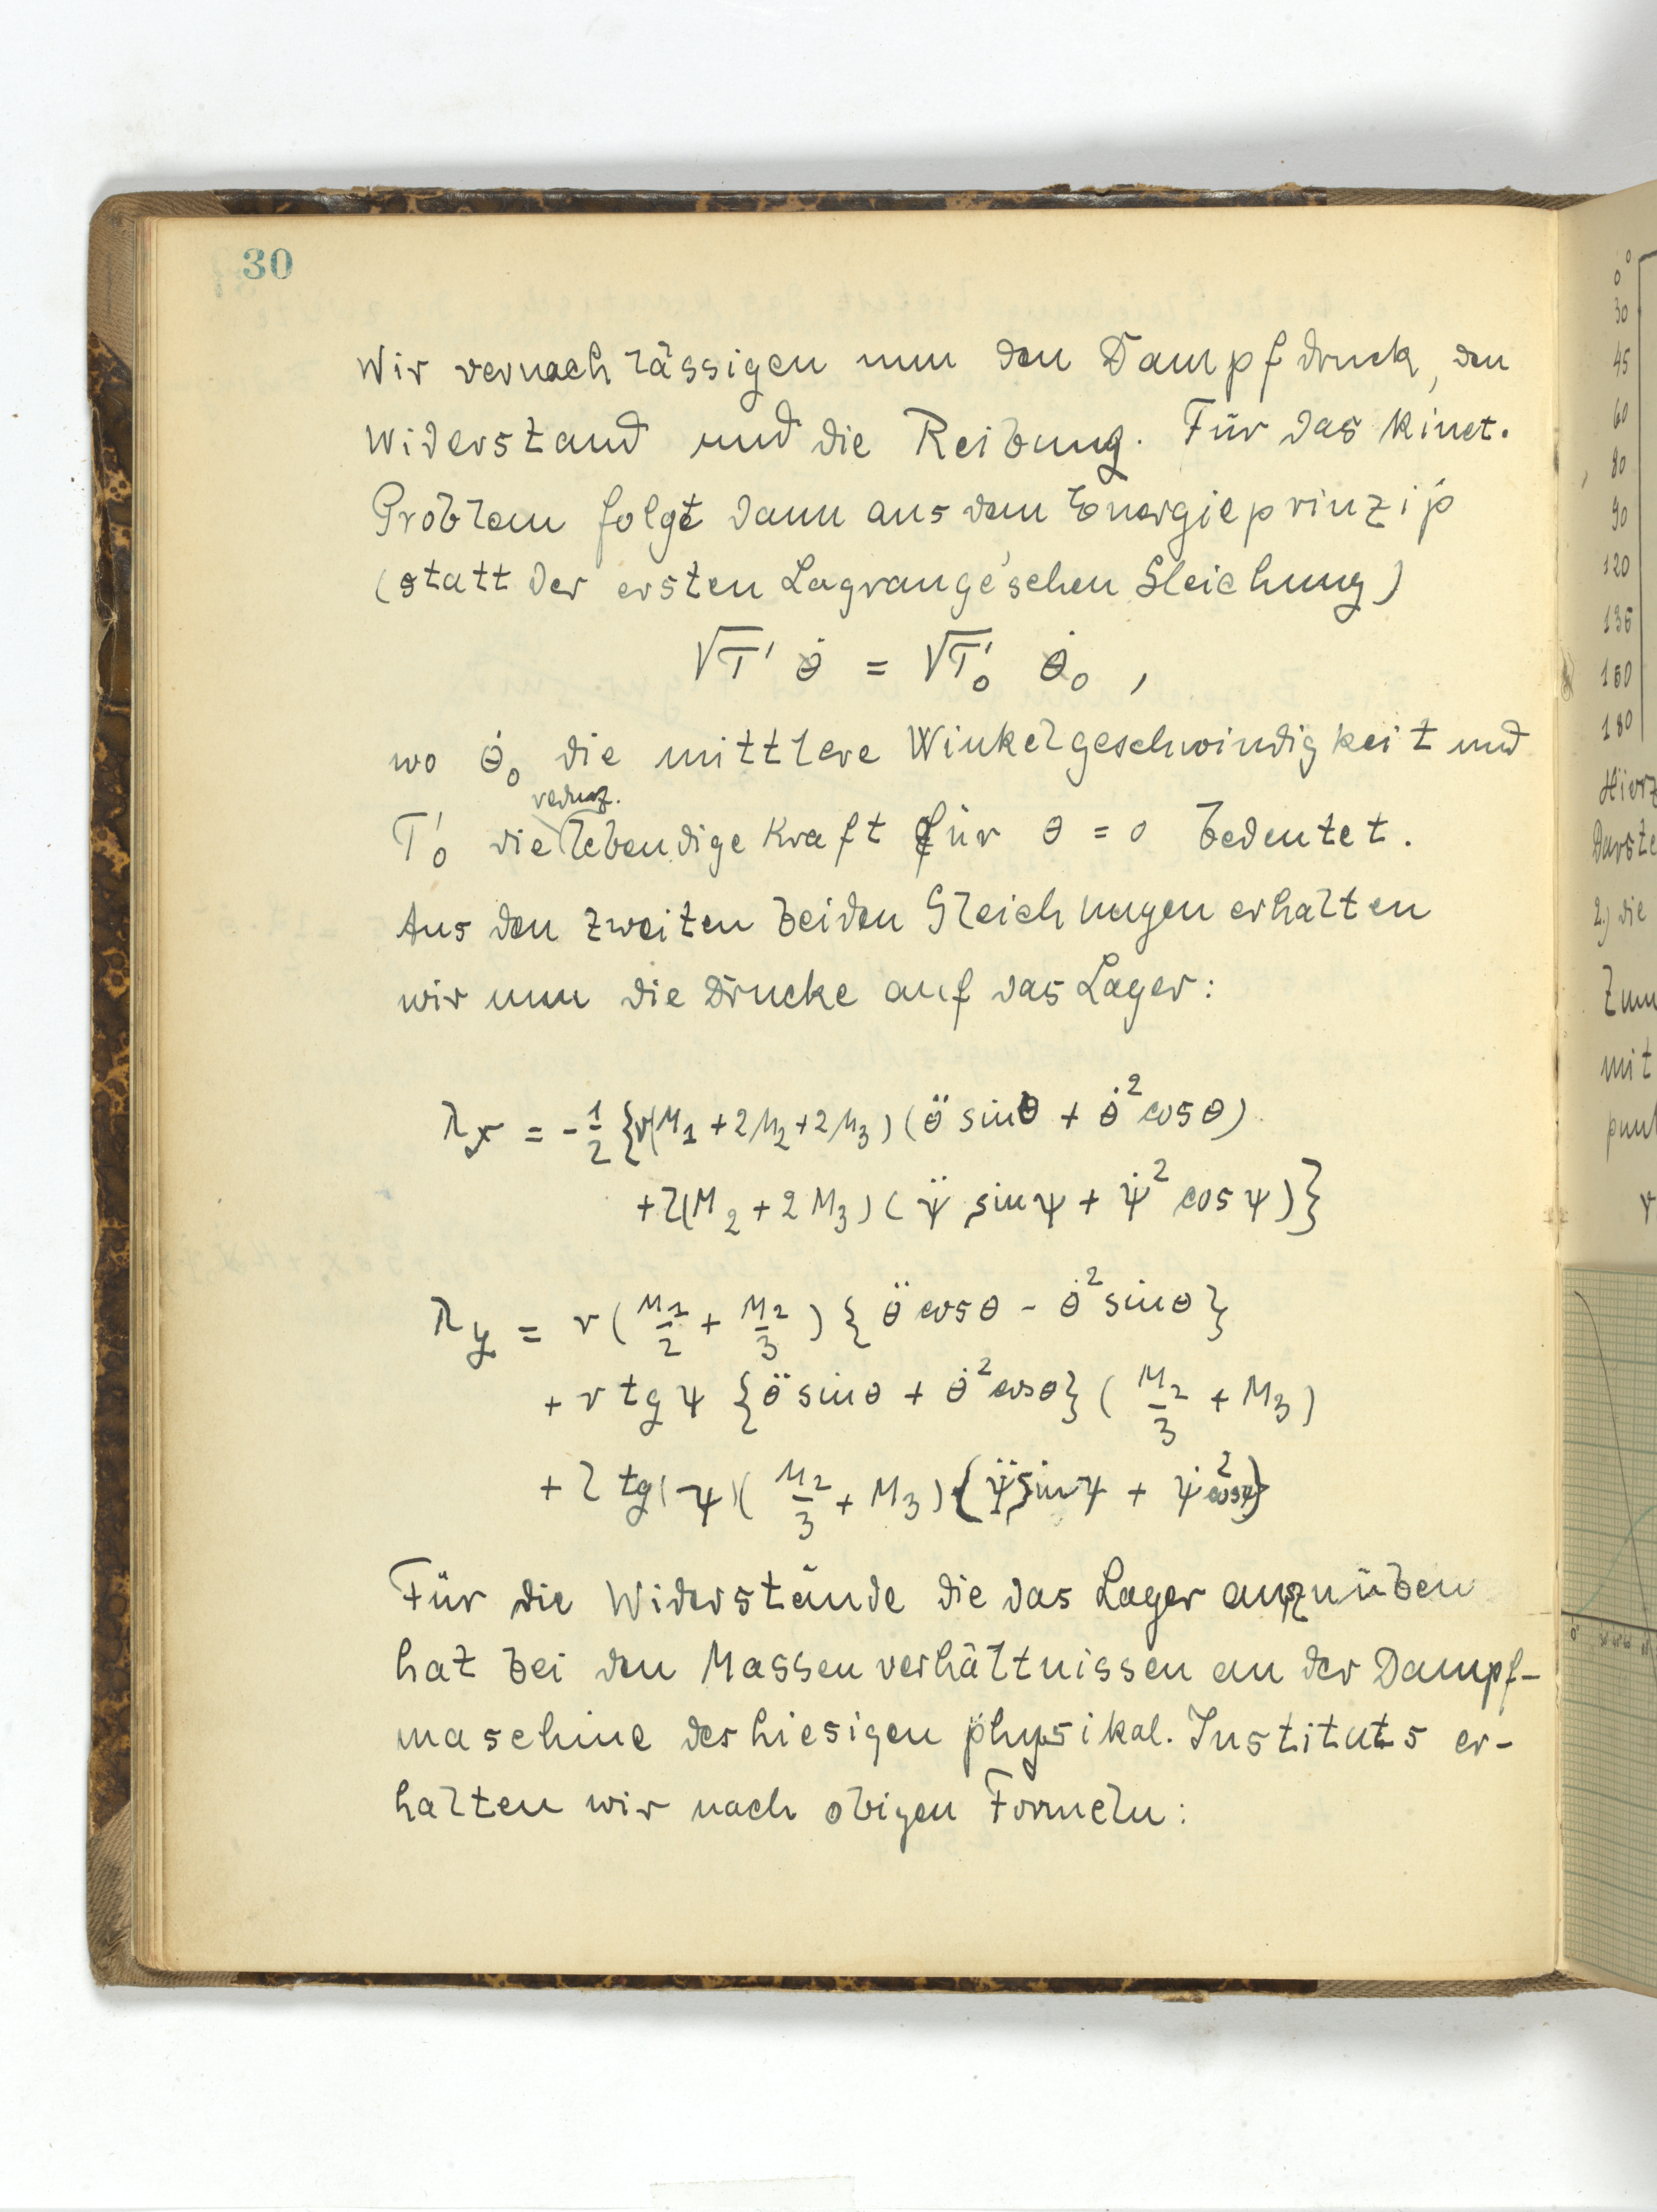 30
Wir vernachlässigen nun den Dampfdruck, den
Widerstand und die Reibung. Für das kinet.
Problem folgt dann aus dem Energieprinzip
(statt der ersten Lagrange'schen Gleichung)
√T' θ̇ = √T'₀ θ̇₀ ,
wo θ̇₀ die mittlere Winkelgeschwindigkeit und
reduz.
T'₀ die lebendige Kraft für θ = 0 bedeutet.
Aus den zweiten beiden Gleichungen erhalten
wir nun die Drucke auf das Lager:
λx = -1/2 {r(M₁ + 2M₂ + 2M₃) (θ̈ sin θ + θ̇² cos θ)
+ l(M₂ + 2M₃) (ψ̈ sin ψ + ψ̇² cos ψ)}
λy = r (M₁/2 + M₂/3) {θ̈ cos θ - θ̇² sin θ}
+ r tg ψ {θ̈ sin θ + θ̇² cos θ} (M₂/3 + M₃)
+ l tg(ψ) (M₂/3 + M₃) {ψ̈ sin ψ + ψ̇² cos ψ}
Für die Widerstände die das Lager auszuüben
hat bei den Massenverhältnissen an der Dampf-
maschine des hiesigen physikal. Instituts er-
halten wir nach obigen Formeln:
0
30
45
60
80
90
120
135
150
180
Hierz
Darste
2.) die
Zum
mit